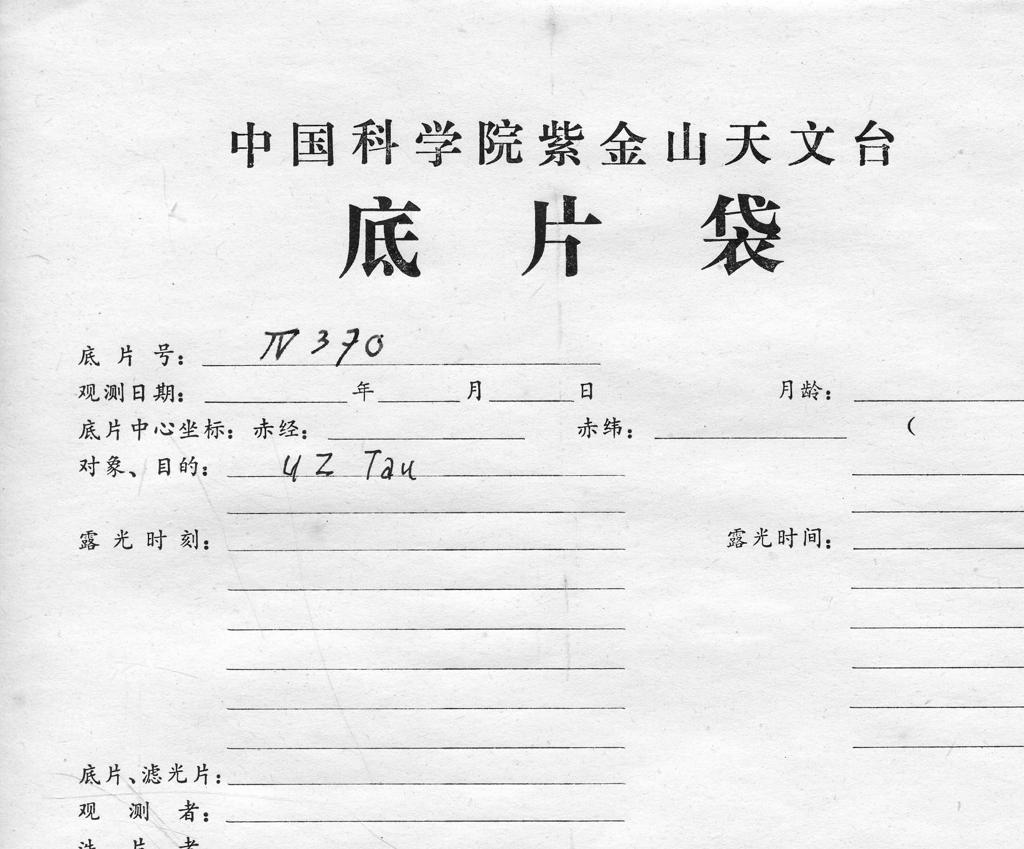 中国科学院紫金山天文台
底片袋
底片号: IV 370
观测日期: 年 月 日 月龄:
底片中心坐标: 赤经: 赤纬: (
对象、目的: UZ Tau
露光时刻: 露光时间:
底片、滤光片:
观测者: